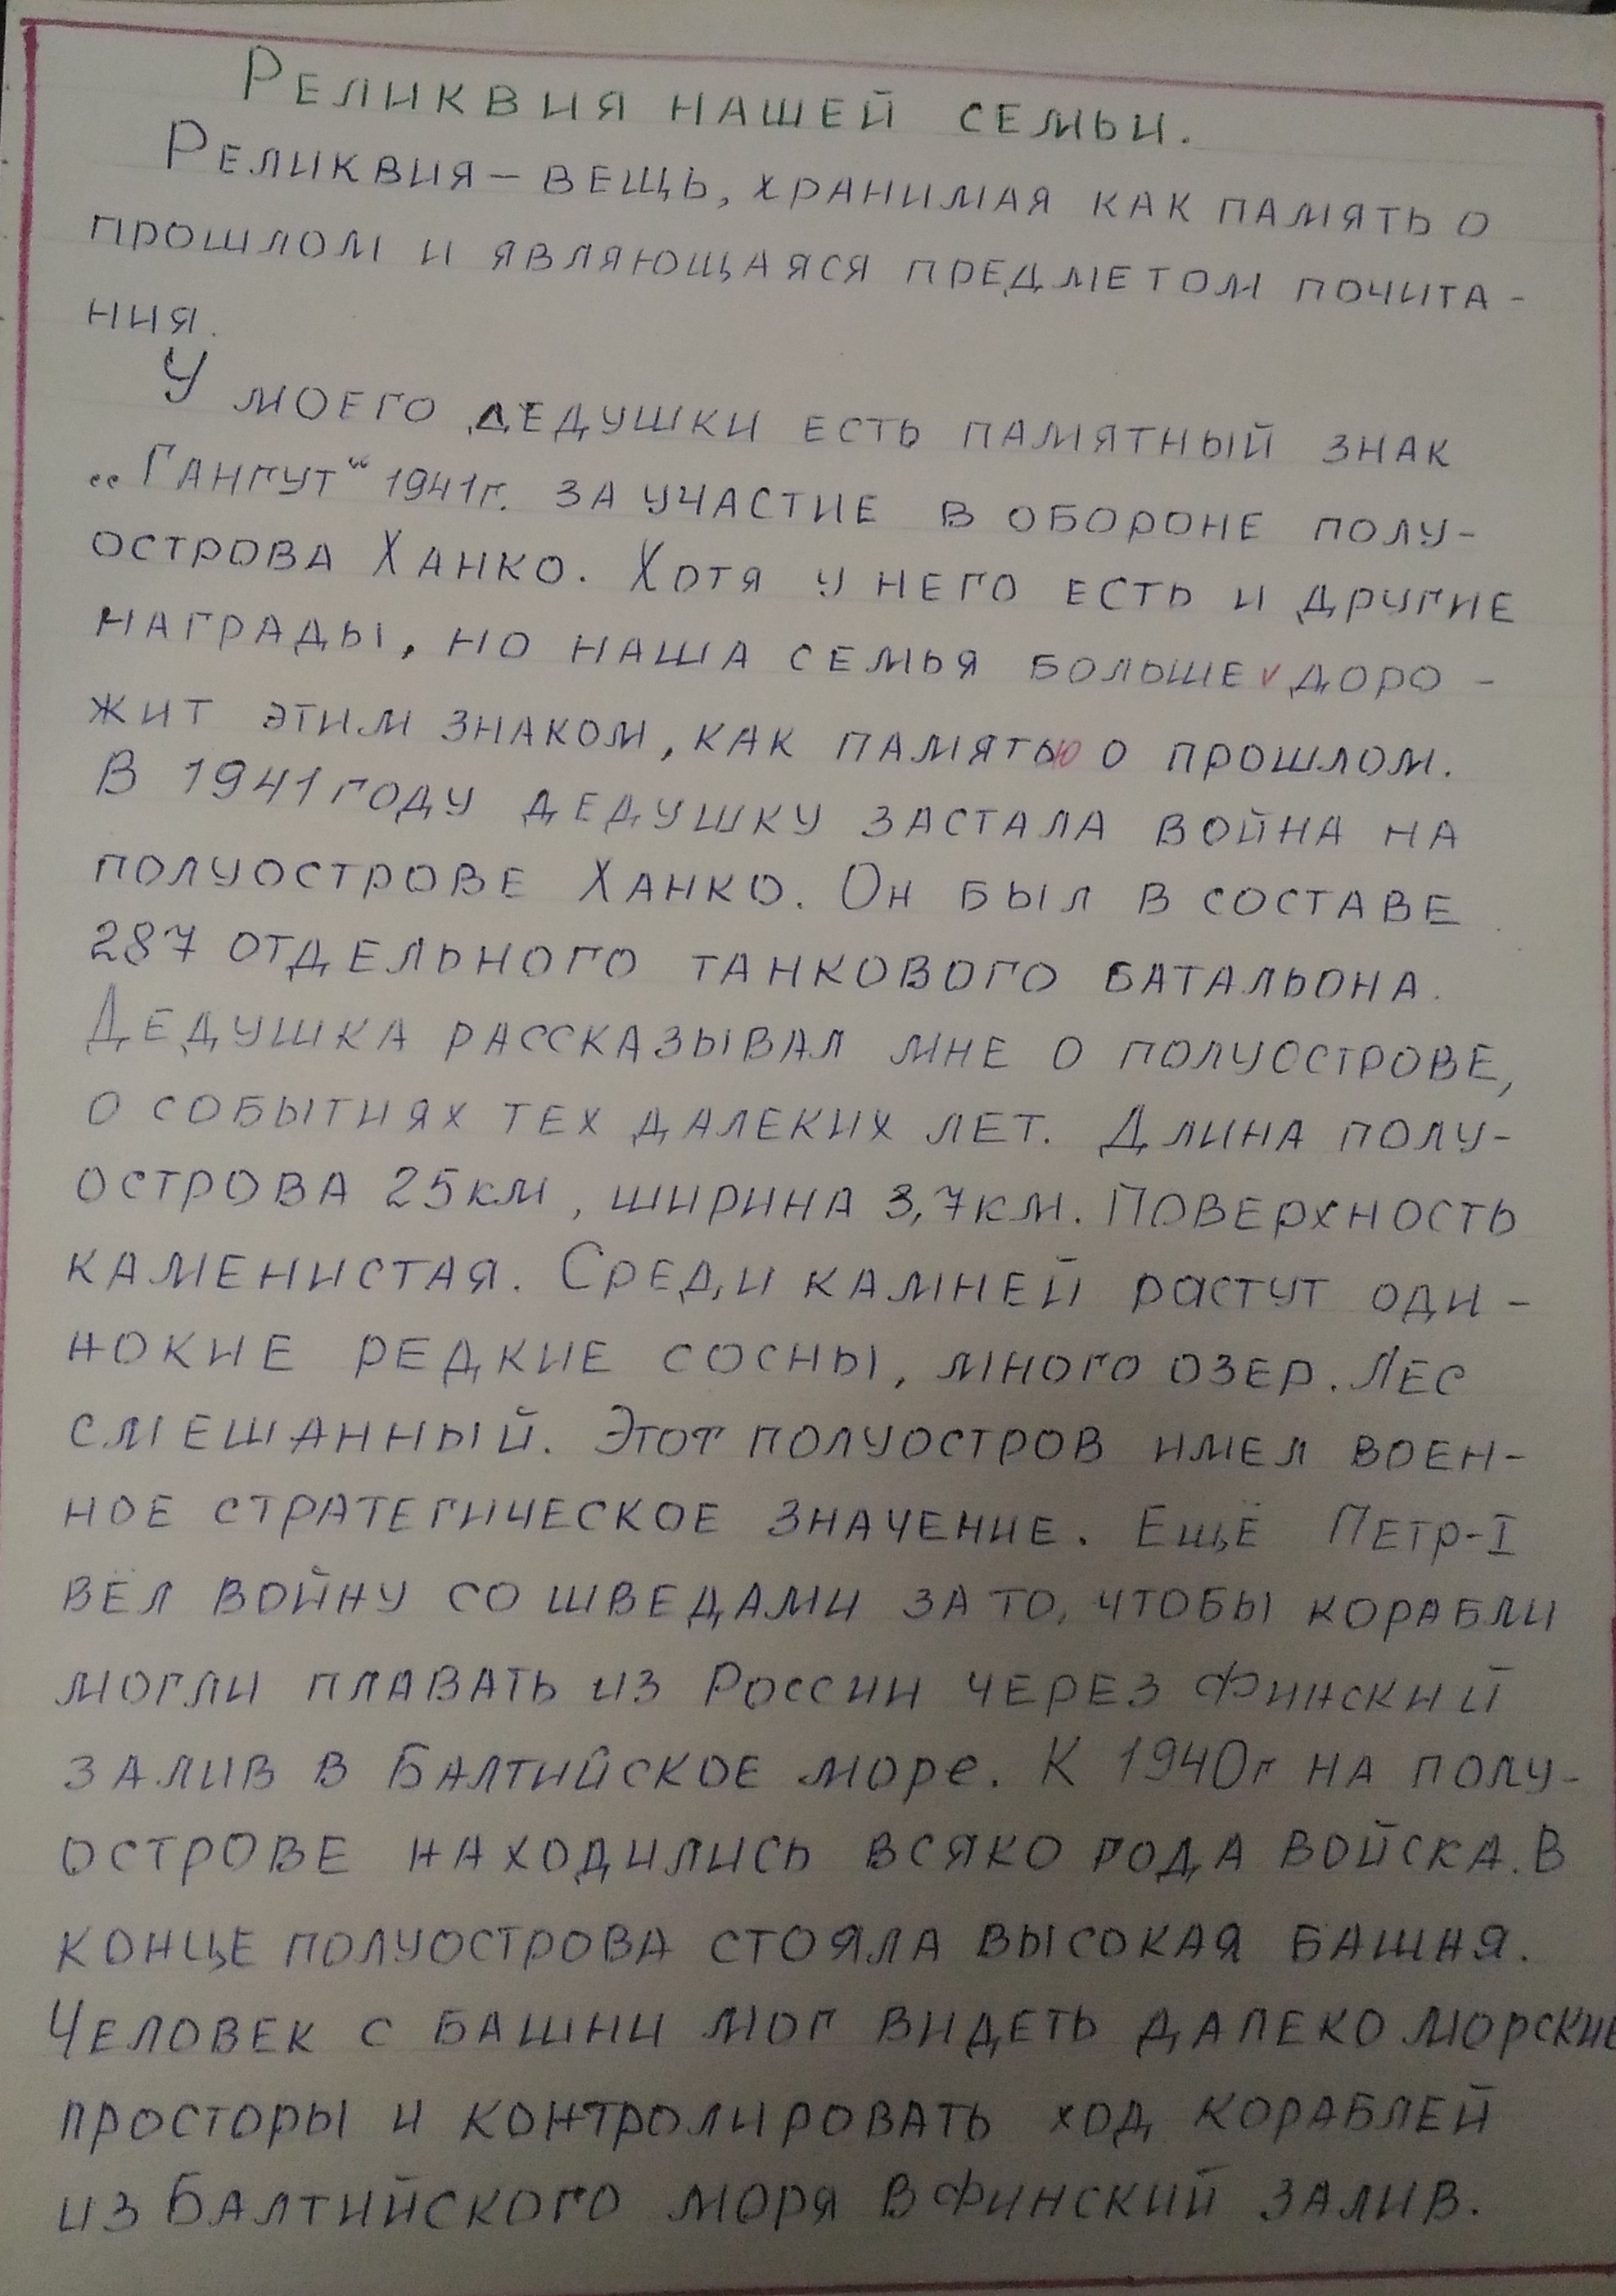 Реликвия нашей семьи.
Реликвия – вещь, хранимая как память о
прошлом и являющаяся предметом почита-
ния.
У моего дедушки есть памятный знак
„Гангут“ 1941г. за участие в обороне полу-
острова Ханко. Хотя у него есть и другие
награды, но наша семья больше v доро-
жит этим знаком, как памятью о прошлом.
В 1941 году дедушку застала война на
полуострове Ханко. Он был в составе
287 отдельного танкового батальона.
Дедушка рассказывал мне о полуострове,
о событиях тех далеких лет. Длина полу-
острова 25км, ширина 3,7км. Поверхность
каменистая. Среди камней растут оди-
нокие редкие сосны, много озер. Лес
смешанный. Этот полуостров имел воен-
ное стратегическое значение. Ещё Петр-I
вёл войну со шведами за то, чтобы корабли
могли плавать из России через Финский
залив в Балтийское море. К 1940г на полу-
острове находились всяко рода войска. В
конце полуострова стояла высокая башня.
Человек с башни мог видеть далеко морские
просторы и контролировать ход кораблей
из Балтийского моря в Финский залив.